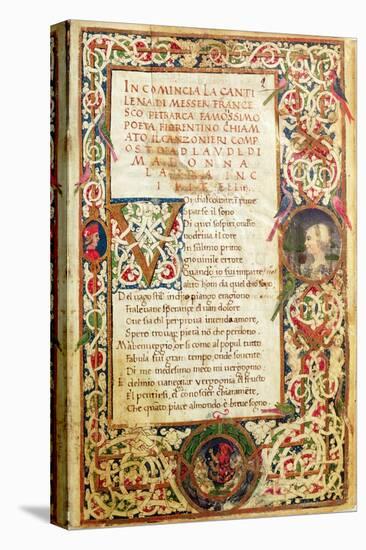 IN COMINCIA LA CANTI
LENA DI MESSER FRANCE
SCO PETRARCA FAMOSSIMO
POETA FIORENTINO CHIAM
ATO IL CANZONIERI COMP
OSTO AD LAVDI DI
MADONNA
LAVRA INC
IPIT
Voi
Sparse il sono
Di quei sospiri
nodriva il core
In sulmio primo
giovinile errore
Quando io fui imparte
altro hom da quel
Del vago stil piango eragiono
Fralevane sperançe el van dolore
Que sia chi per prova intenda amore,
Spero trovar pietà nō che perdono.
Ma ben veggio, or si come al popul tutto
Fabula fui gran tempo onde sovente
Di me medesimo meco mi vergogno.
E del mio vaneggiar vergogna el fructo
El pentirsi, el conoscer chiaramēte,
Che quāto piace almondo è breve sogno.